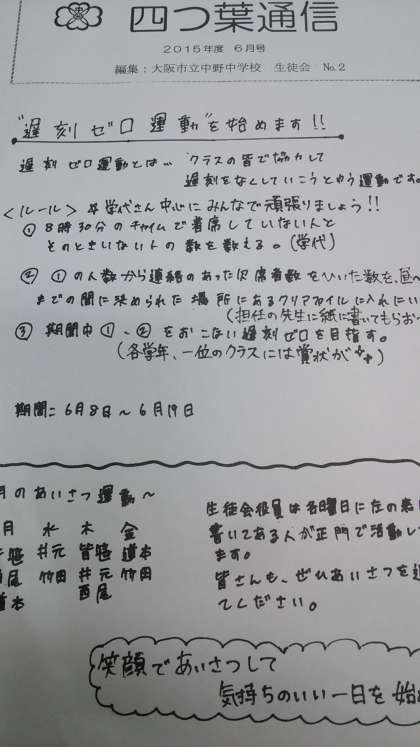 四つ葉通信
2015年度 6月号
編集:大阪市立中野中学校 生徒会 No.2
"遅刻ゼロ運動"を始めます!!
遅刻ゼロ運動とは… クラスの皆で協力して
遅刻をなくしていこうとゆう運動です。
<ルール> #学代さん中心にみんなで頑張りましょう!!
① 8時30分のチャイムで着席していない人と
そのときいない人の数を数える。(学代)
② ①の人数から連絡のあった欠席者数をひいた数を、昼
までの間に決められた場所にあるクリアファイルに入れにい
(担任の先生に紙に書いてもらおー
③ 期間中①、②をおこない遅刻ゼロを目指す。
(各学年、一位のクラスには賞状が
期間:6月8日~6月19日
月のあいさつ運動~
月 水 木 金
笹 井元 皆笹 道本
尾 竹田 井元 竹田
本 西尾
生徒会役員は各曜日に左の表に
書いてある人が正門で活動し
ます。
皆さんも、ぜひあいさつを
てください。
笑顔であいさつして
気持ちのいい一日を始め